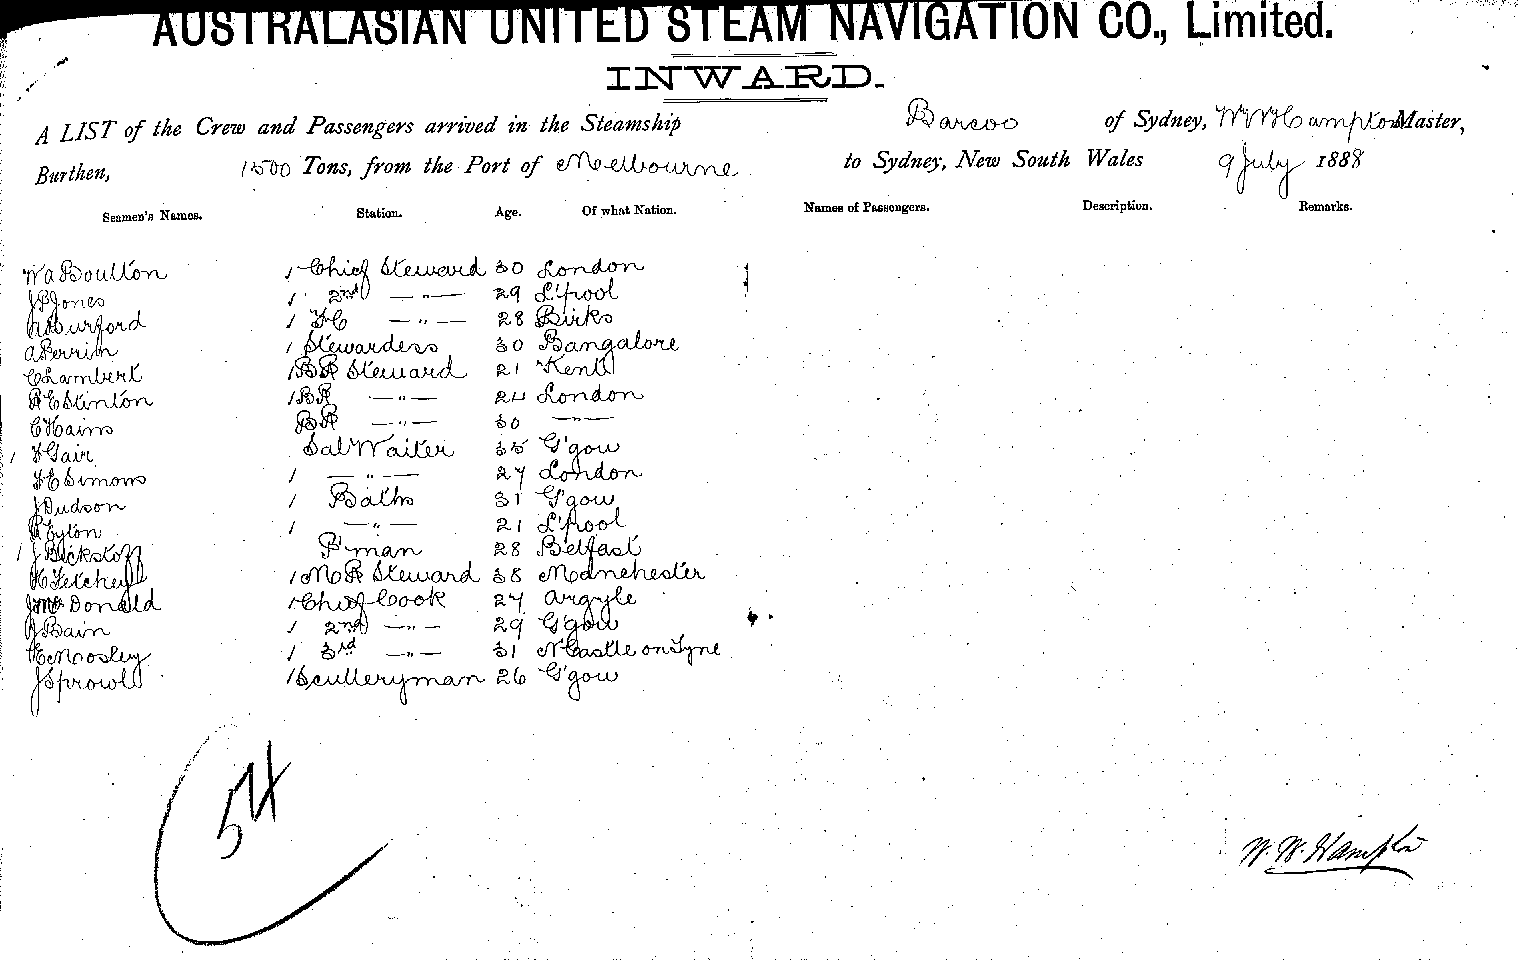 AUSTRALASIAN UNITED STEAM NAVIGATION CO., Limited.
INWARD.
A LIST of the Crew and Passengers arrived in the Steamship Barcoo of Sydney, W W Hampton Master,
Burthen, 1500 Tons, from the Port of Melbourne to Sydney, New South Wales 9 July 1888
Seamen's Names. Station. Age. Of what Nation. Names of Passengers. Description. Remarks.
W a Boulton 1 Chief Steward 30 London
J P Jones 1 2nd —"— 29 L'pool
Burford 1 F C —"— 28 Birks
A Perrin 1 Stewardess 30 Bangalore
C Lambert 1 BR Steward 21 Kent
R E Stinton 1 BR —"— 24 London
C Hains BR —"— 30 —"—
1 F Gair Sal Waiter 35 G'gow
F C Simons 1 —"— 27 London
J Dudson 1 Baths 31 G'gow
R Eyton 1 —"— 21 L'pool
1 J Bickstoff P'man 28 Belfast
H Fetchell 1 M R Steward 38 Manchester
J Mc Donald 1 Chief Cook 27 Argyle
J Bain 1 2nd —"— 29 G'gow
H Mosley 1 3rd —"— 31 N Castle on Tyne
J Sprowl 1 Sculleryman 26 G'gow
54
W. W. Hampton